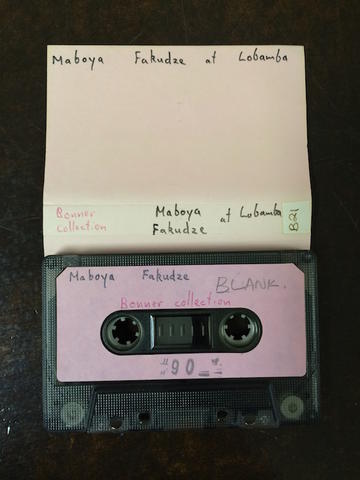 Maboya Fakudze at Lobamba
Bonner
collection
Maboya
Fakudze
at Lobamba
B21
Maboya Fakudze
BLANK.
Bonner collection
90